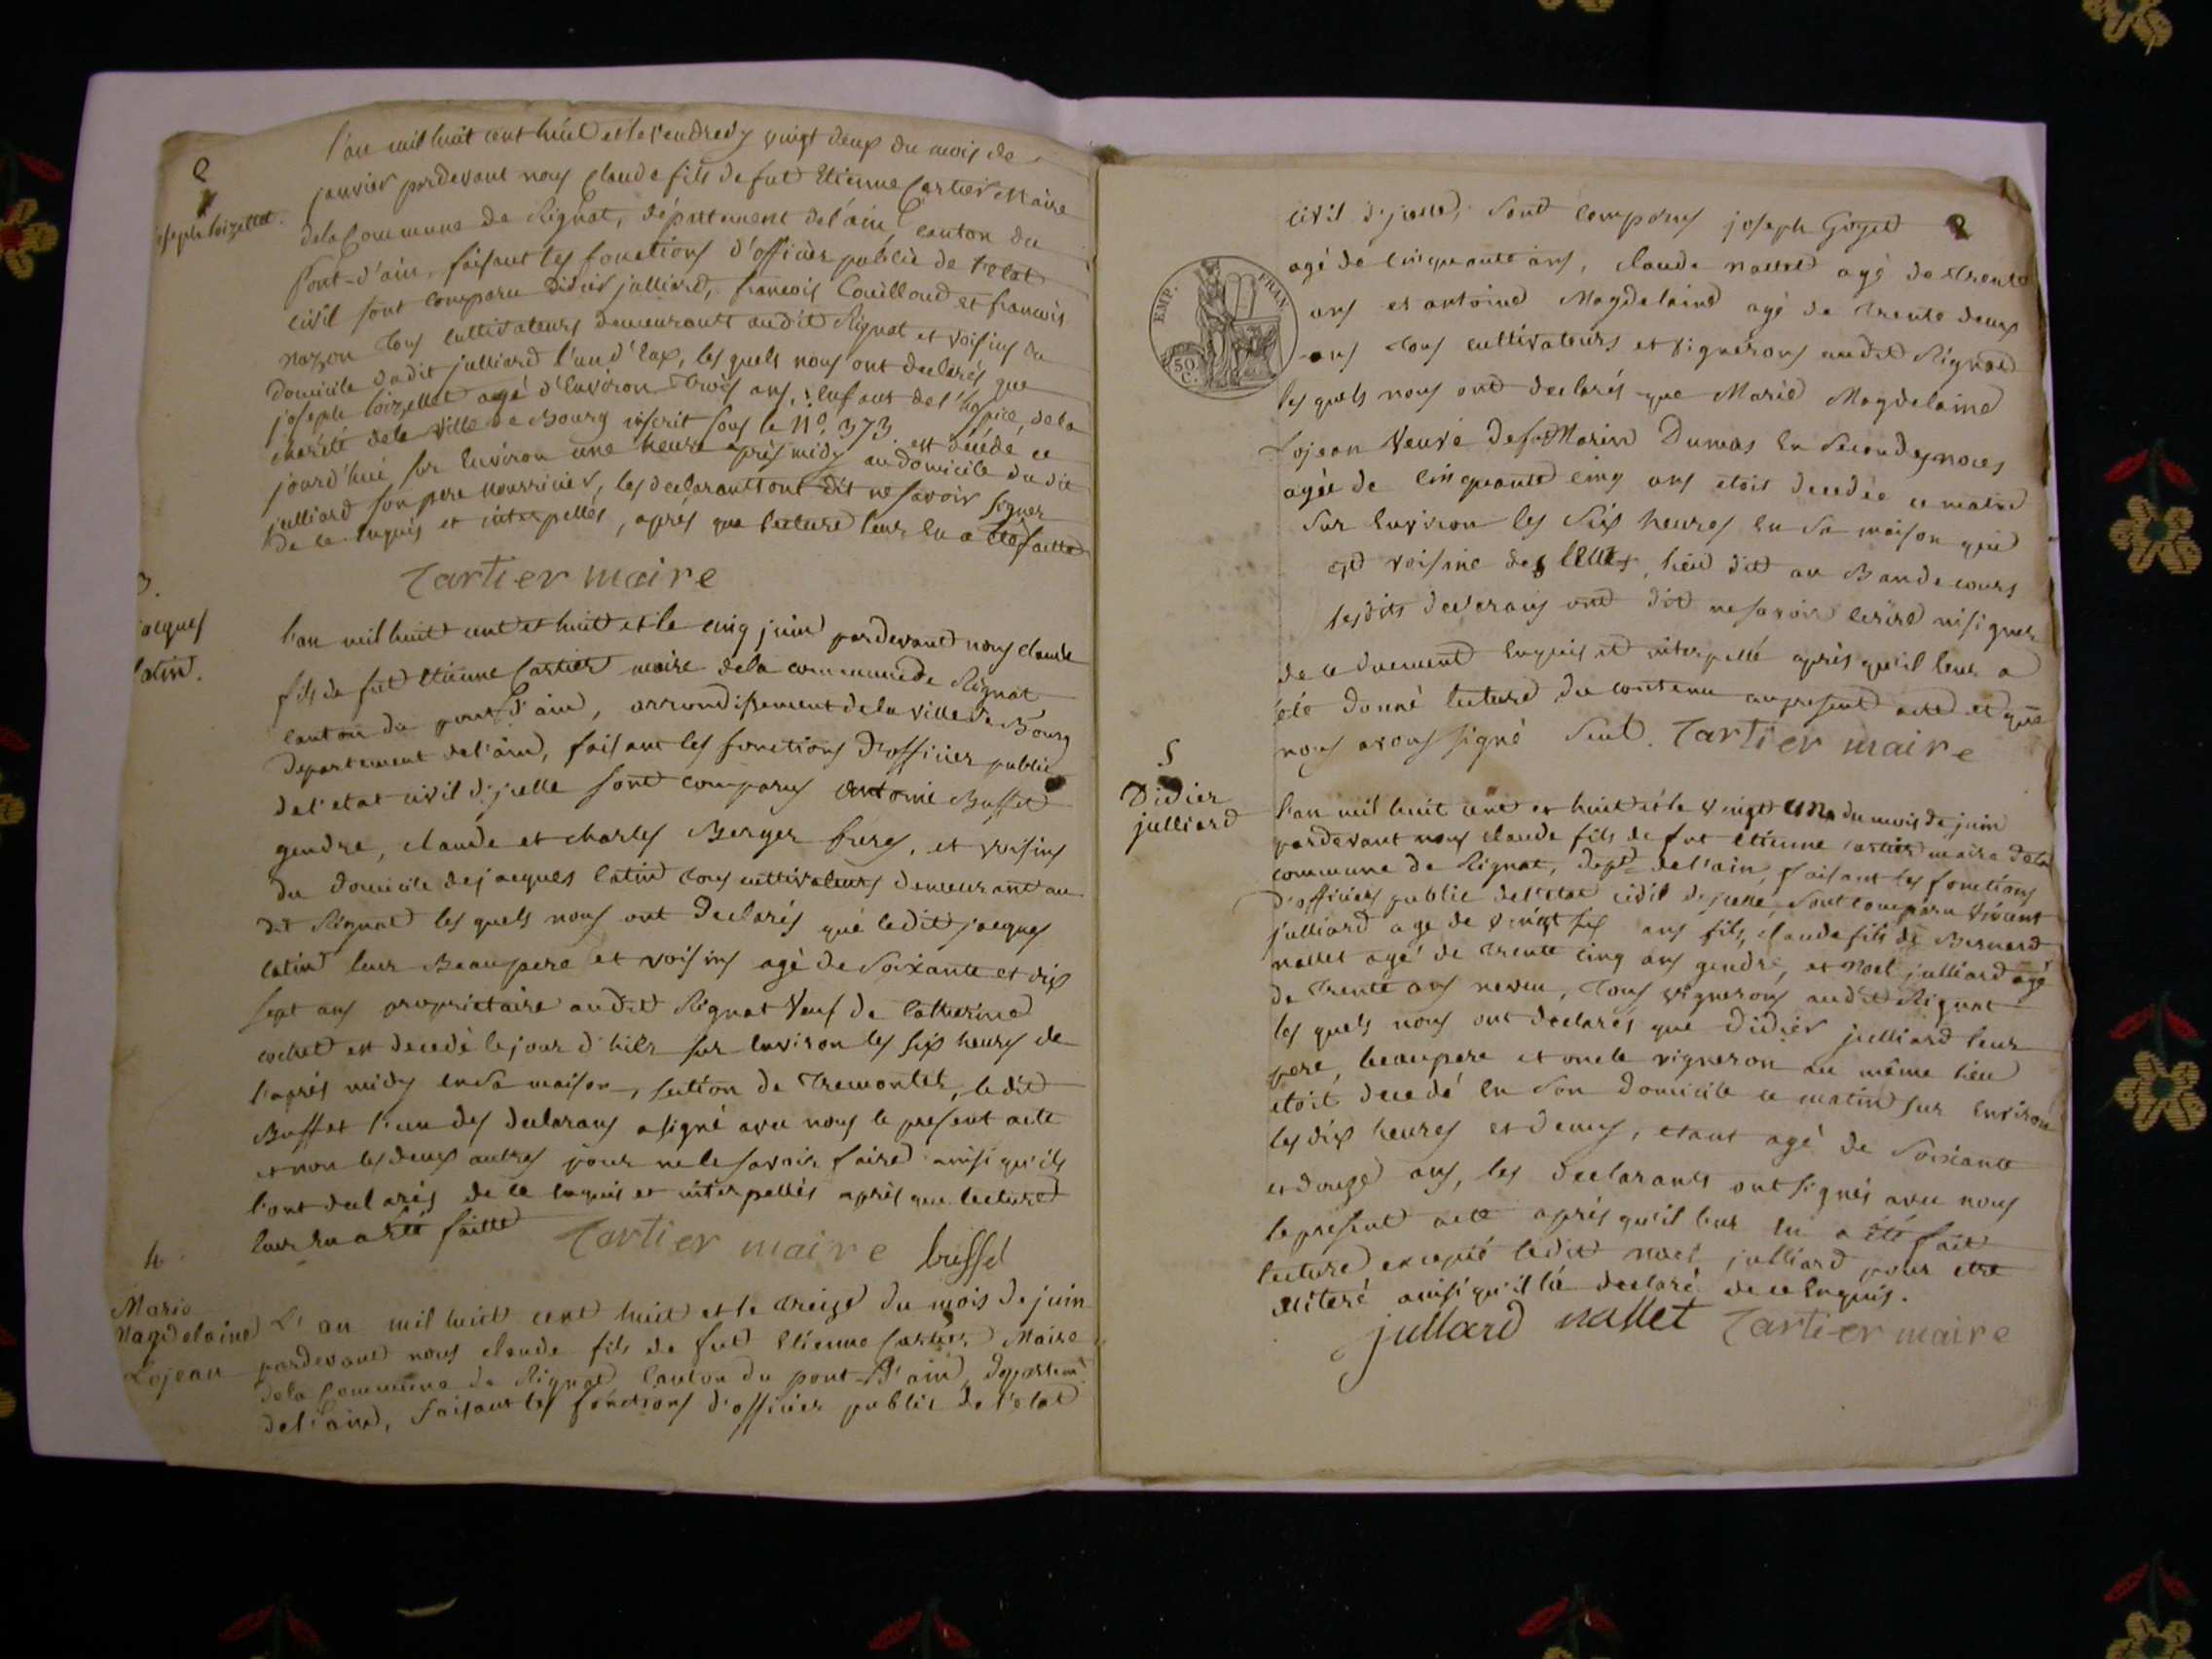 2
joseph loizellet.
l'an mil huit cent huit et le vendredy vingt deux du mois de
janvier pardevant nous Claude fils de fut Etienne Cartier Maire
de la Commune de Rignat, département de l'ain, canton du
Pont-d'ain, faisant les fonctions d'officier public de l'état
civil sont comparu Didier julliard, francois Couilloud et francois
mazon tous cultivateurs demeurants audit Rignat et voisins du
domicile dudit julliard l'un d'Eux, les quels nous ont declarés que
joseph loizellet agé d'Environ trois ans, Enfant de l'hospice de la
charité de la ville de Bourg inscrit sous le N.º 373. est décédé ce
jourd'hui sur Environ une heure après midy au domicile du dit
julliard son pere nourricier, les declarants ont dit ne savoir signer
de ce Enquis et interpellés, aprés que lecture leur en a été faitte
Cartier maire
3.
jacques
latin.
l'an mil huit cent et huit et le cinq juin pardevant nous claude
fils de fut Etienne Cartier maire de la commune de Rignat
canton du pont d'ain, arrondissement de la ville de Bourg
departement de l'ain, faisant les fonctions d'officier public
de l'etat civil d'jcelle sont comparus antoine Buffet
gendre, claude et charles Berger freres, et voisins
du domicile de jacques latin tous cultivateurs demeurant au
dit Rignat les quels nous ont declarés que ledit jacques
latin leur Beaupere et voisins agé de Soixante et dix
sept ans proprietaire audit Rignat Veuf de Catherine
cochet est decedé le jour d'hier sur Environ les six heures de
l'aprés midy en Sa maison, section de Tremontet, le dit
Buffet l'un des declarans a signé avec nous le present acte
et non les deux autres pour ne le savoir faire ainsi qu'ils
l'ont declarés de ce Enquis et interpellés aprés que lecture
leur en a été faitte Cartier maire buffet
4
Marie
Magdelaine
Lojean
L'an mil huit cent huit et le treize du mois de juin
pardevant nous claude fils de fut Etienne Cartier Maire
de la Commune de Rignat Canton du pont-d'ain, departemt
de l'ain, faisant les fonctions d'officier public de l'etat
2
civil d'jcelle, sont comparus joseph Goget
agé de Cinquante ans, claude nallet agé de trente
ans et antoine Magdelaine agé de trente deux
ans tous cultivateurs et vignerons audit Rignat
les quels nous ont declarés que Marie Magdelaine
Lojean Veuve de fut Marin Dumas En Secondes noces
agée de Cinquante cinq ans etoit decedée ce matin
sur Environ les six heures En Sa maison qui
est voisine des leurs, lieu dit au Bandecours
lesdits declerans ont dit ne savoir Ecrire ni signer
de ce duement Enquis et interpellé aprés qu'il leur a
été donné lecture du contenu au present acte et que
nous avons signé Seul. Cartier maire
EMP. FRAN.
50 C.
5
Didier
julliard
l'an mil huit cent et huit et le vingt un du mois de juin
pardevant nous claude fils de fut Etienne Cartier maire de la
commune de Rignat, dept de l'ain, faisant les fonctions
d'officier public de l'etat civil d'jcelle, sont comparu Vincent
julliard agé de vingt six ans fils, claude fils de Bernard
nallet agé de trente cinq ans gendre, et Noel julliard agé
de trente ans neveu, tous vignerons audit Rignat
les quels nous ont declarés que Didier julliard leur
pere, beaupere et oncle vigneron au même lieu
etoit decedé En Son Domicile ce matin sur Environ
les dix heures et demy, etant agé de Soixante
et douze ans, les declarants ont signés avec nous
le present acte aprés qu'il leur En a été fait
lecture excepté ledit noel julliard pour etre
illiteré ainsi qu'il l'a declaré de ce Enquis.
jullard nallet Cartier maire